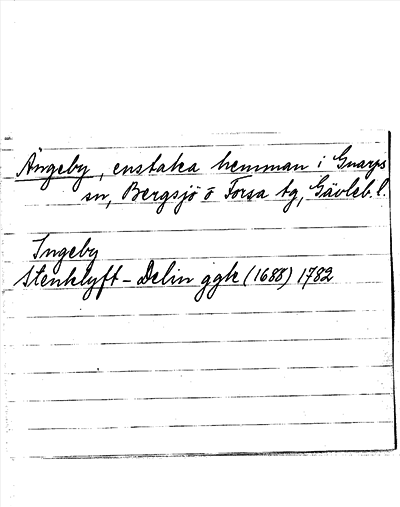 Ängeby, enstaka hemman i Gnarps
sn, Bergsjö o Forsa tg, Gävleb. l.
Ingeby
Stenklyft - Delin ggk (1688) 1782